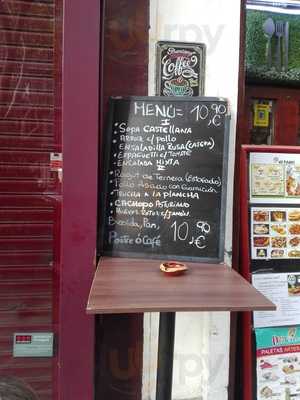 Coffee
MENÚ= 10,90 €
I
• SOPA CASTELLANA
• ARROZ c/ pollo
• ENSALADILLA RUSA (CASERA)
• ESPAGUETTI c/ TOMATE
• ENSALADA MIXTA
II
• Ragut de Ternera (Estofado)
• Pollo Asado con Guarnición
• TRUCHA A LA PLANCHA
• CACHOPO ASTURIANO
• HUEVOS ROTOS c/ JAMÓN
Bebida, Pan,
Postre ó Café
10,90 €